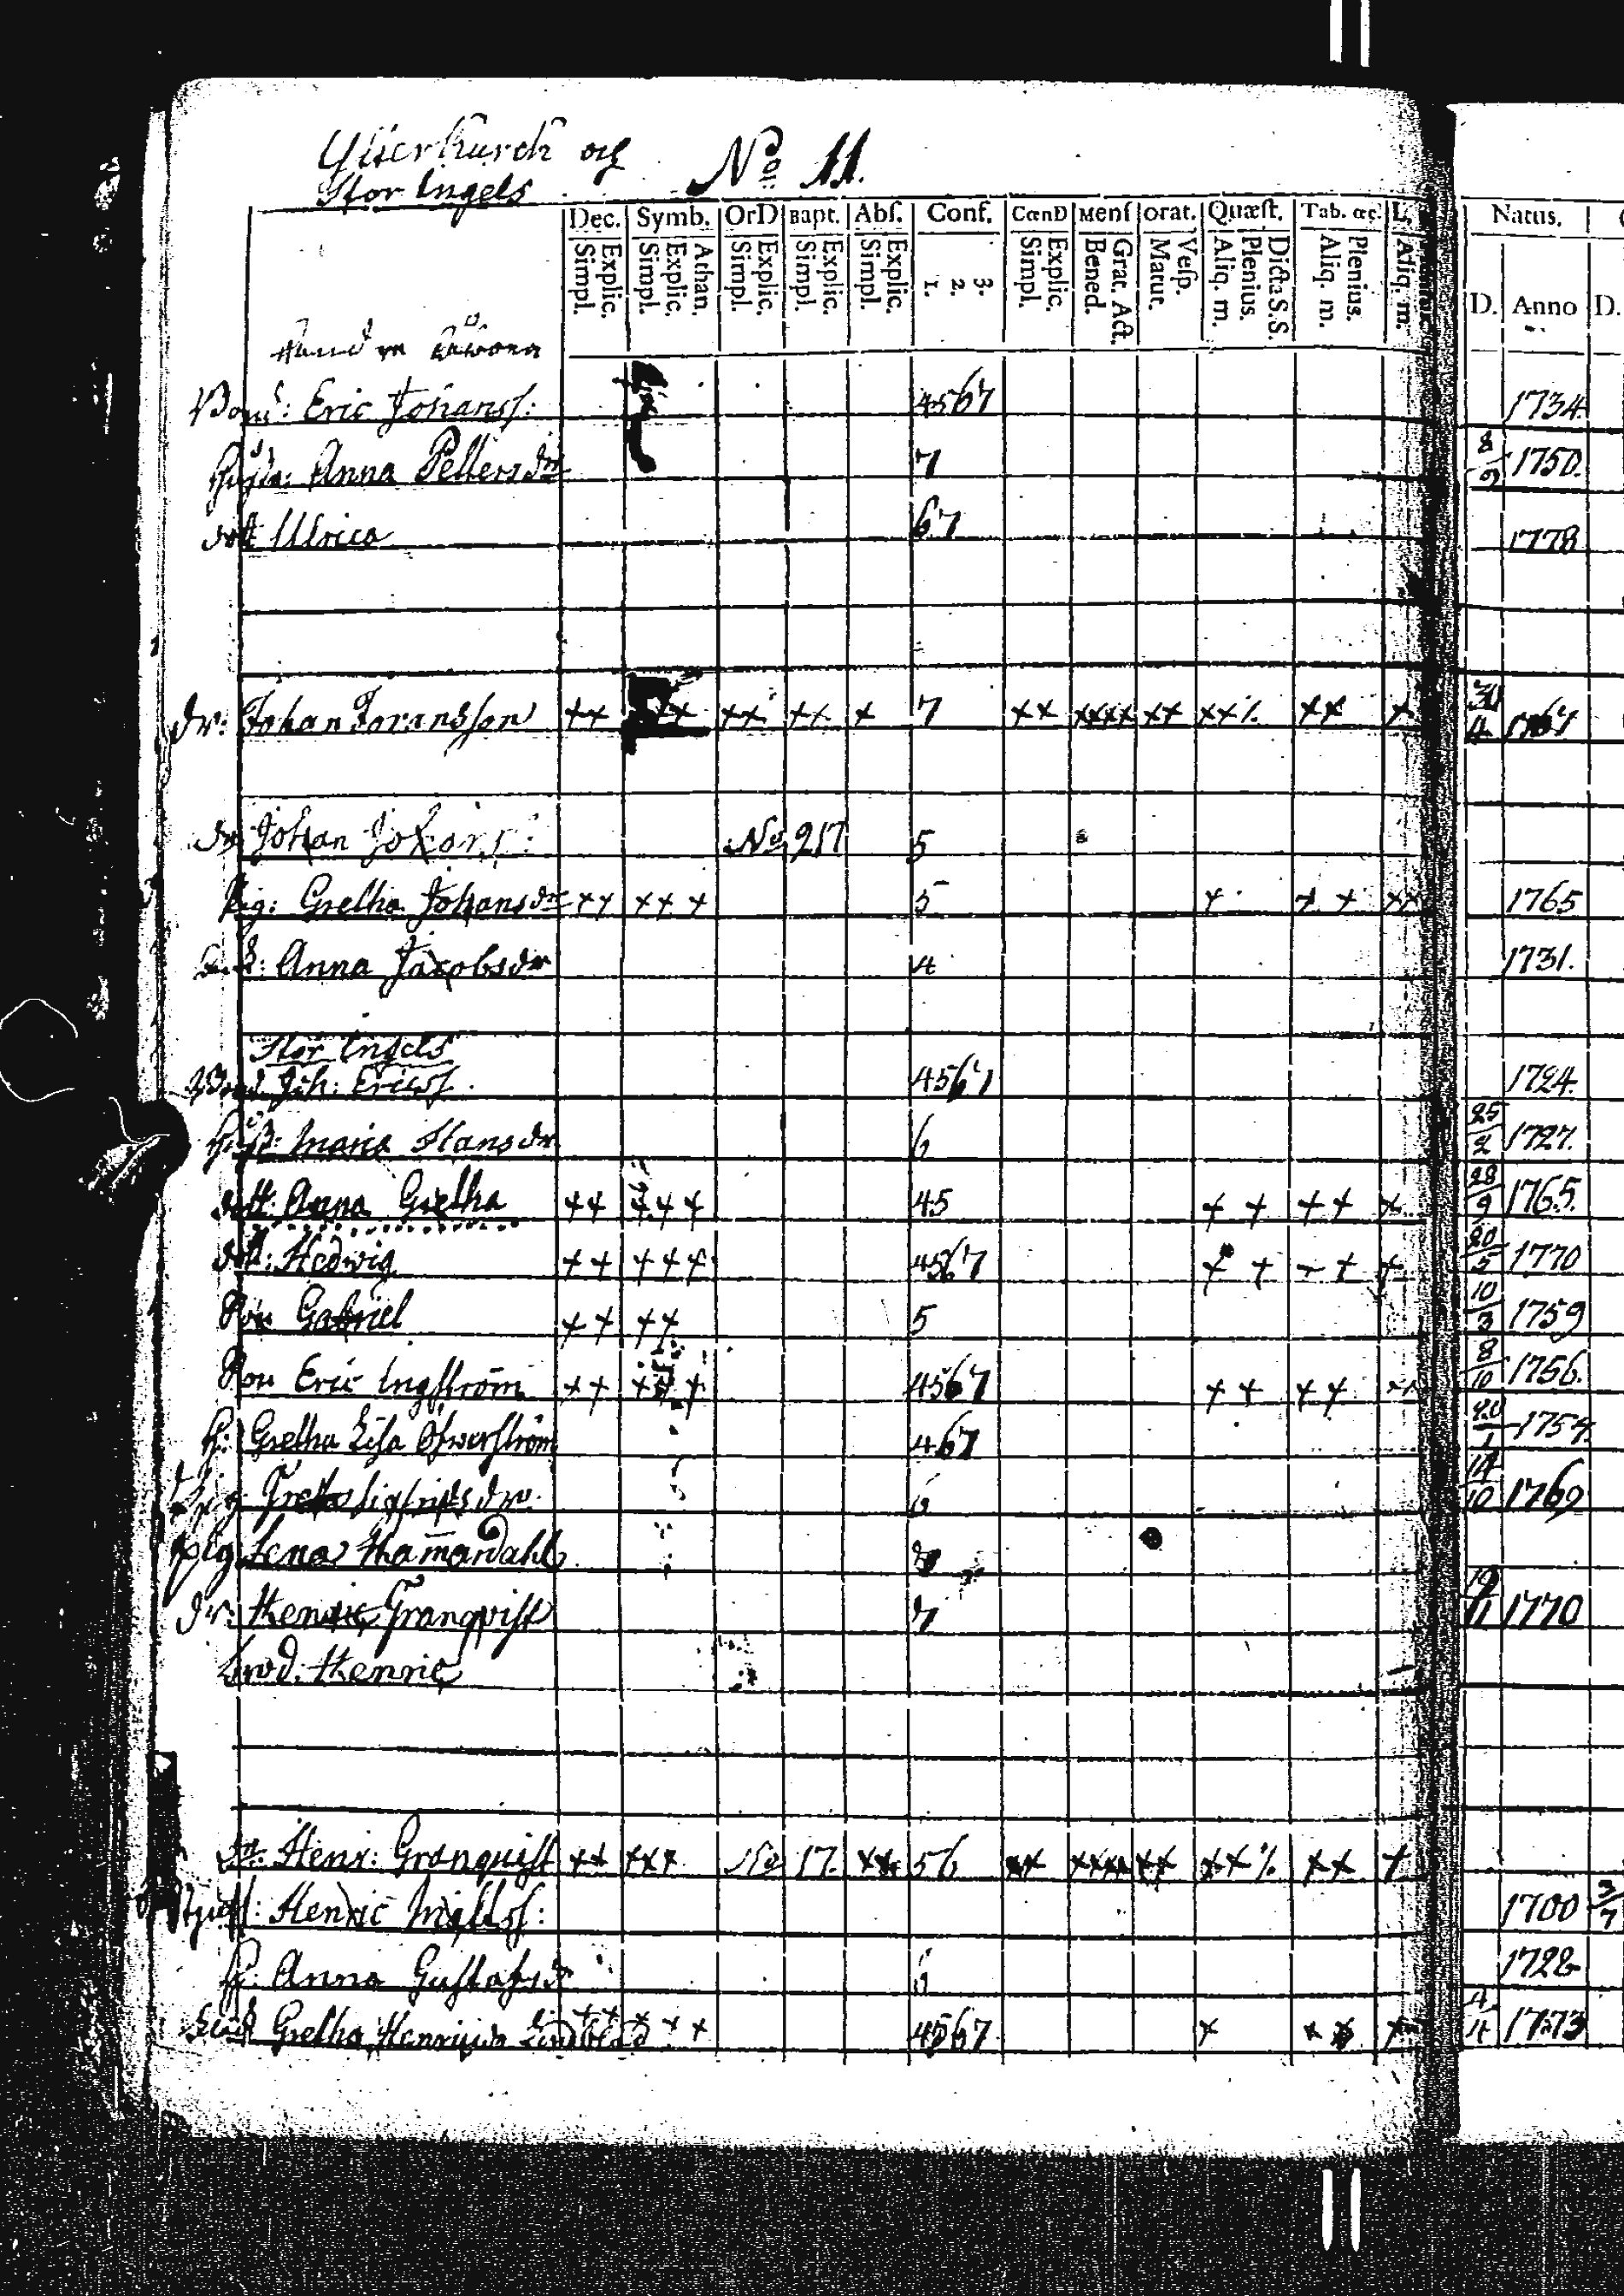 Ytterkurck och No 11.
Stor Ingels
Dec. Symb. OrD Bapt. Abſ. Conf. CœnD Menſ Orat. Quæſt. Tab. œc. L. Natus.
Simpl. Explic. Simpl. Explic. Athan. Simpl. Explic. Simpl. Explic. Simpl. Explic. 1. 2. 3. Simpl. Explic. Bened. Grat. Act. Matut. Veſp. Aliq. m. Plenius. Dicta S.S. Aliq. m. Plenius. Aliq. m. D. Anno D.
Bond: Eric Johansſ: 4567 1734
Anna Pettersdr 7 8/9 1750.
dott Ulrica 67 1778
dr: Johan Joransſon ++ ++ ++ ++ + 7 ++ ++++ ++ ++% ++ + 1767
dr Johan Johansſ: No 217 5
Pig: Gretha Johansdr ++ +++ 5 + + + ++ 1765
Anna Jacobsdr 4 1731.
Stor Ingels
Bond. Joh: Ericsſ. 4567 1724.
Maria Hansdr 6 25/2 1727.
dott: Anna Gretha ++ +++ 45 + + ++ + 28/9 1765.
dott: Hedwig ++ +++ 4567 + + + + + 20/5 1770
Son Gabriel ++ ++ 5 10/3 1759
Son Eric Ingſtröm ++ +++ 4567 ++ ++ ++ 8/10 1756.
h: Gretha Liſa 467 1757.
Pig Greta Sigfridsdr 6 14/10 1769
Pig Lena
dr: Henric Granqviſt 7 19/11 1770
Henric
dr: Henr: Granquiſt ++ +++ No 17. ++ 56 ++ ++++ ++ ++% ++ +
Henric 1700 3/7
h: Anna Guſtafsdr 6 1728
Gretha Henricsdr Lindblad ++ + + + 4567 + + + + 4/4 1773